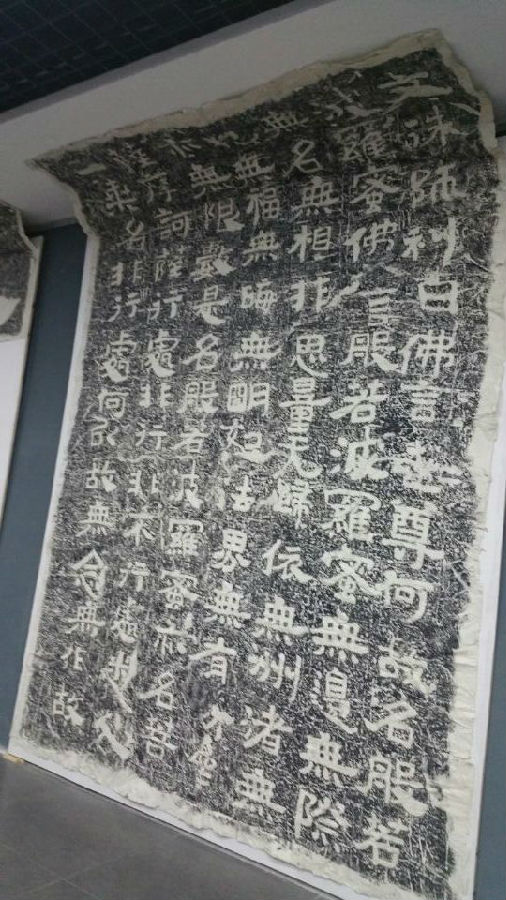 文殊師利白佛言世尊何故名般若
波羅蜜佛言般若波羅蜜無邊無際
無名無相非思量無歸依無洲渚無
犯無福無晦無明如法界無有分齊
亦無限數是名般若波羅蜜亦名菩
薩摩訶薩行處非行非不行處悉入
一乘名非行處何以故無念無作故